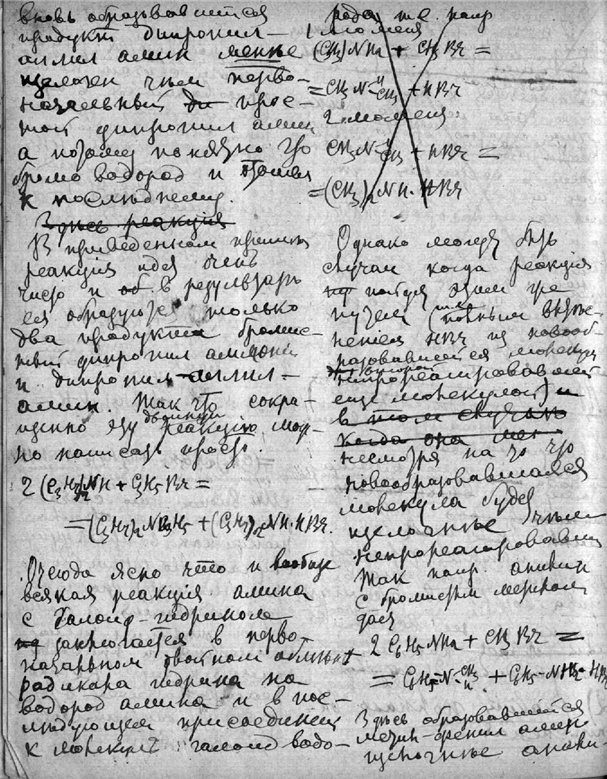 вновь образовавшейся
продукт дипропил-
аллил амин менѣе
щелочен чѣм перво-
начальный ди прос-
той дипропил амин
а потому понятно что
бромо водород и
к послѣднему.
Здѣсь реакція
В приведенном примѣрѣ
реакція идет очень
чисто и об в результатѣ
ея образуется только
два продукта бромис-
тый дипропил аммоній
и дипропил-аллил-
амин. Так что сокра-
щенно эту двойную реакцію мож-
но написать просто.
2 (C3H7)2NH + C3H5Br =
=(C3H7)2NC3H5 + (C3H7)2NH·HBr.
Отсюда ясно что и вообще
всякая реакція амина
с галоид-гидрином
заключается в перво-
начальном двойном обмѣнѣ
радикала гидрина на
водород амина и в пос-
лѣдующем присоединеніи
к молекулѣ галоид водо-
рода т.е. напр
1 момент
(CH3)NH2 + CH3Br =
= CH3N-H CH3 + HBr
2 момент
CH3N-H CH3 + HBr =
=(CH3)2NH·HBr
Однако могут быть
случаи когда реакція
пойдет этим же
путем
неніем HBr из новооб-
разовавшейся молекулы
непрореагировавшей
еще молекулой) и
в том случаѣ
когда она
несмотря на то что
новообразовавшаяся
молекула будет
щелочнѣе чѣм
непрореагировавшая
Так напр. анилин
с бромистым метилом
дает
2 C6H5NH2 + CH3Br =
= C6H5-N-CH3 H + C6H5-NH2·HBr
Здѣсь образовавшейся
метил-фенил амин
щелочнѣе анили-